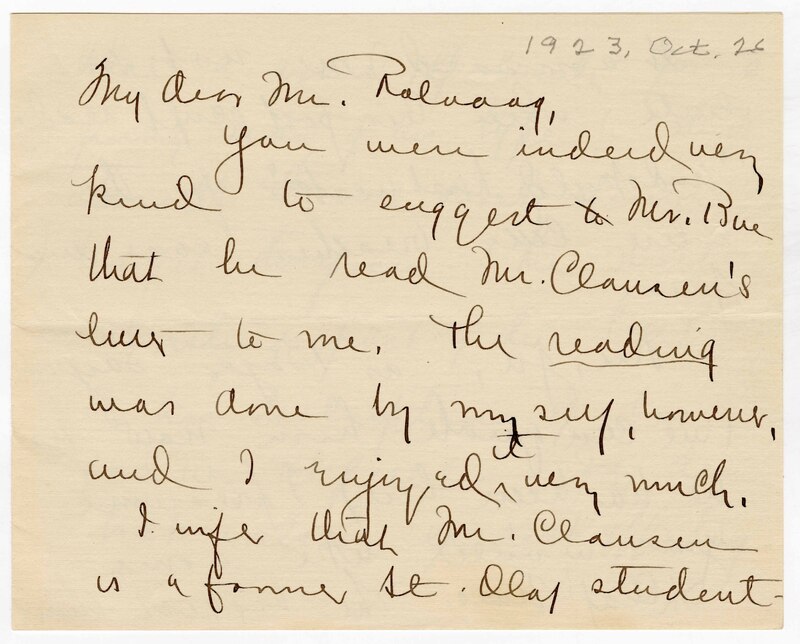 1923, Oct. 26
My dear Mr. Rolvaag,
You were indeed very
kind to suggest to Mr. Bue
that he read Mr. Clausen's
letter to me. The reading
was done by myself, however,
and I enjoyed it very much.
I infer that Mr. Clausen
is a former St. Olaf student-